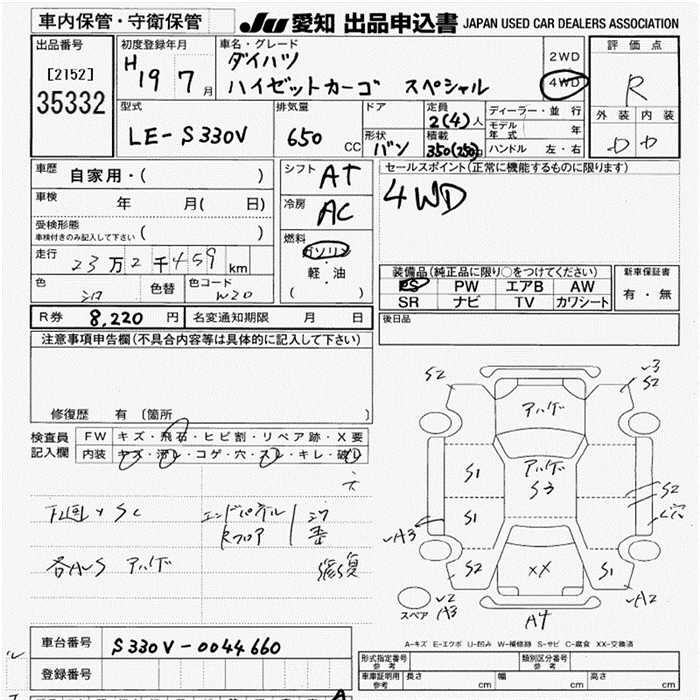 車内保管・守衛保管
JU 愛知 出品申込書 JAPAN USED CAR DEALERS ASSOCIATION
出品番号
[2152]
35332
初度登録年月
H 19 7 月
車名・グレード
ダイハツ
ハイゼットカーゴ スペシャル
2WD
4WD
評価点
R
外装 内装
D D
型式
LE-S330V
排気量
650 CC
ドア
形状
バン
定員
2(4)人
積載
350(250)
ディーラー・並行
モデル年式 年
ハンドル 左・右
車歴
自家用・( )
車検
年 月( 日)
受検形態
車検付きのみ記入して下さい ( )
走行
23万2千459km
色
シロ
色替
色コード
W20
シフト
AT
冷房
AC
燃料
ガソリン
軽・油
( )
セールスポイント(正常に機能するものに限ります)
4WD
装備品(純正品に限り○をつけてください)
PS PW エアB AW
SR ナビ TV カワシート
新車保証書
有・無
R券 8,220 円
名変通知期限 月 日
後日品
注意事項申告欄(不具合内容等は具体的に記入して下さい)
修復歴 有 〔箇所 〕
検査員
記入欄
FW キズ・飛石・ヒビ割・リペア跡・X要
内装 キズ・汚レ・コゲ・穴・スレ・キレ・破レ
エンドパネル
Rフロア
修復
各A,S アハゲ
S2
アハゲ
S2
S1
アハゲ
S3
S2
S1
A3
S2
XX
S1
A2
スペア
A3
A4
A-キズ E-エクボ U-凹み W-補修跡 S-サビ C-腐食 XX-交換済
車台番号
S330V-0044660
登録番号
形式指定番号
参考
類別区分番号
参考
車庫証明用
参考
長さ cm 幅 cm 高さ cm